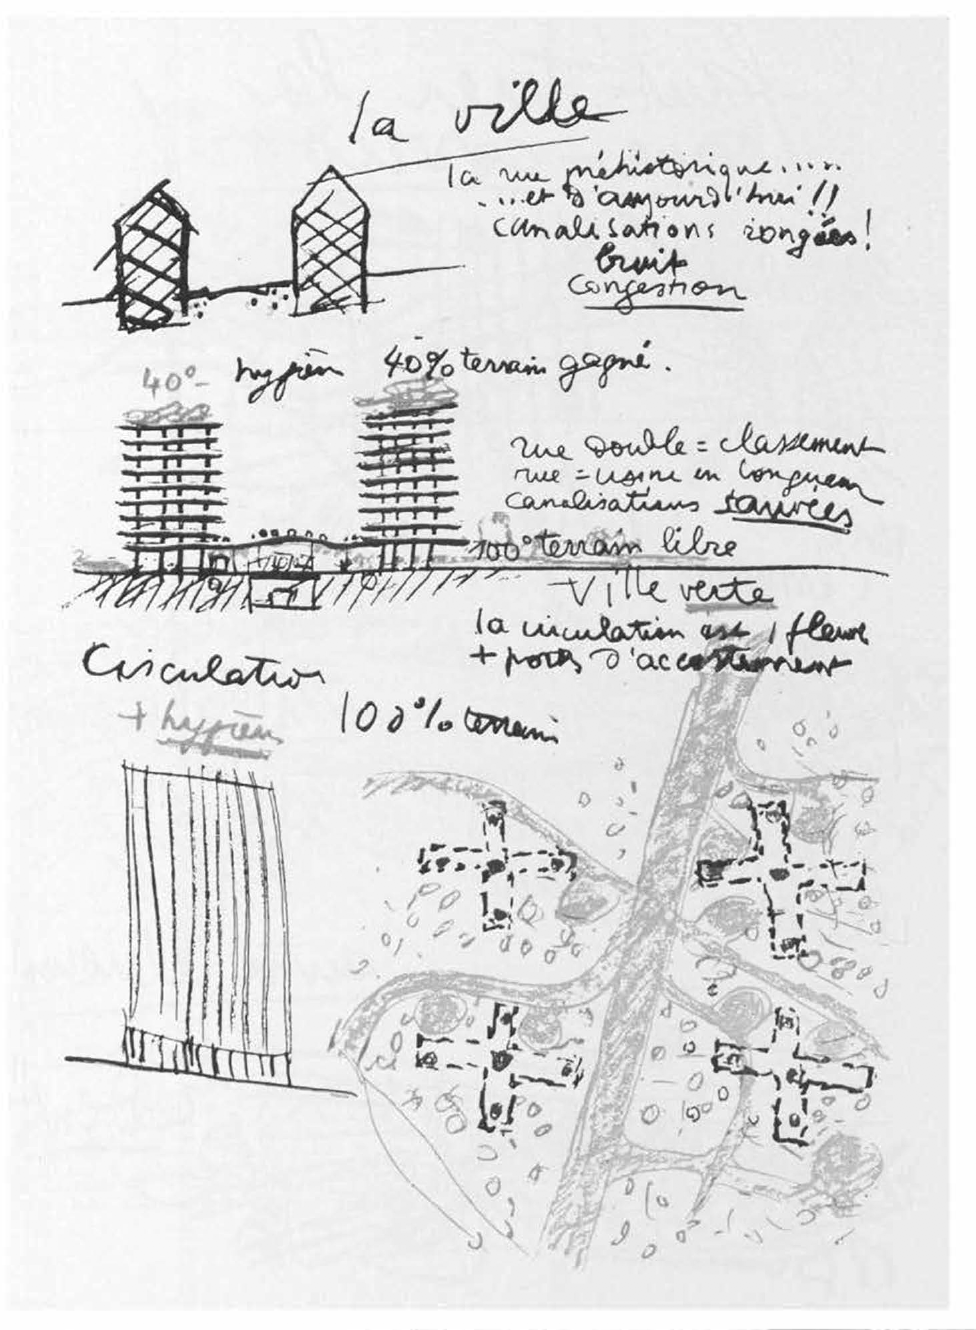 la ville
la rue préhistorique.....
...et d'aujourd'hui !!
canalisations rongées !
bruit
congestion
40%
hygièn 40% terrain gagné.
rue double = classement
rue = usine en longueur
canalisations sauvées
100% terrain libre
+ Ville verte
la circulation est 1 fleuve
+ ports d'accostement
Circulation
+ hygièn
100% terrain